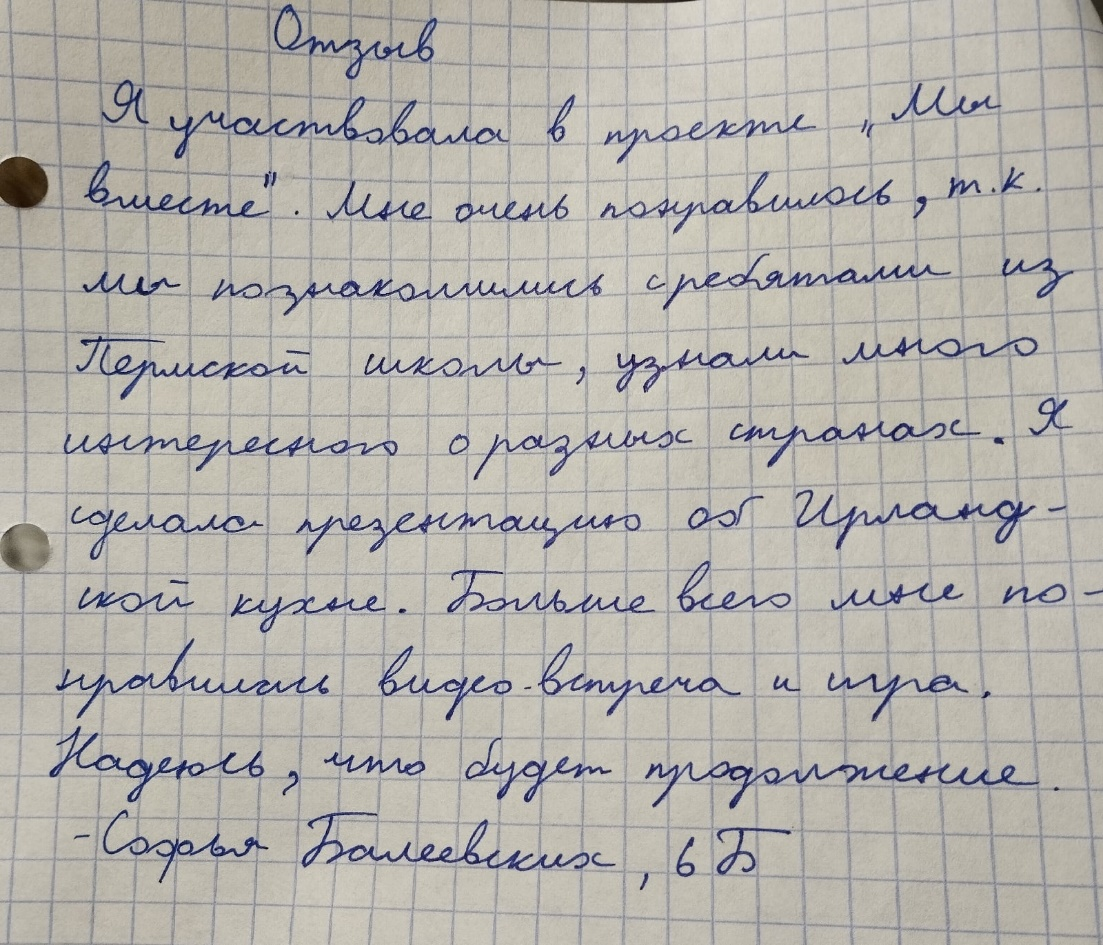 Отзыв
Я участвовала в проекте „Мы
вместе". Мне очень понравилось, т.к.
мы познакомились с ребятами из
Пермской школы, узнали много
интересного о разных странах. Я
сделала презентацию об Ирланд-
ской кухне. Больше всего мне по-
нравилась видео-встреча и игра.
Надеюсь, что будет продолжение.
-Софья Балеевских, 6 Б